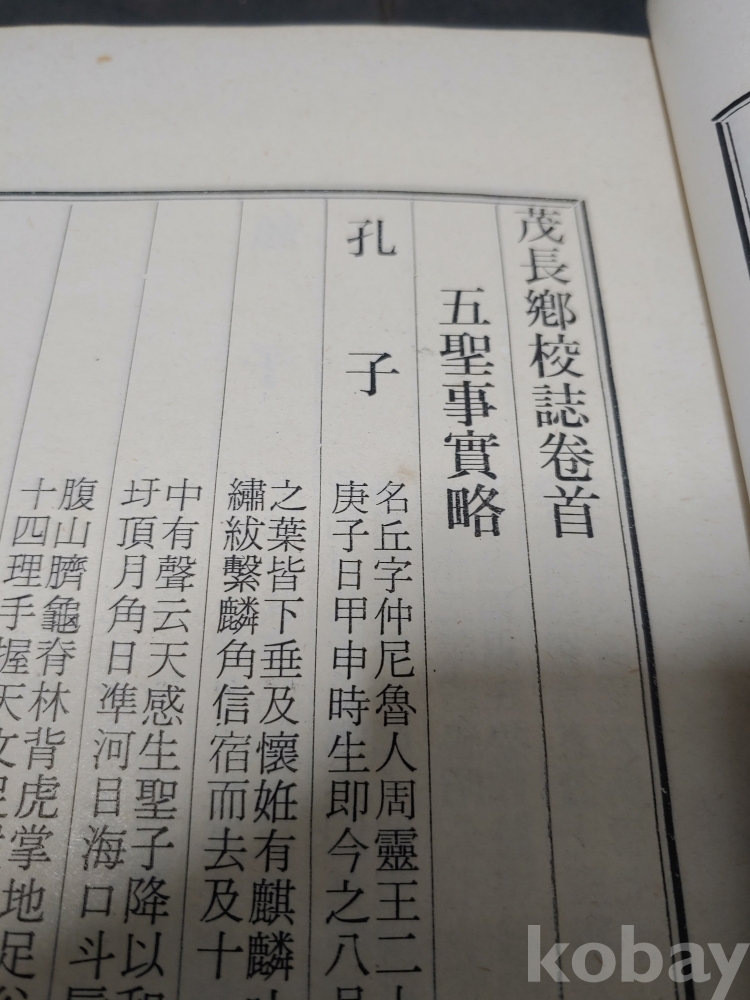 茂長鄕校誌卷首
五聖事實略
孔子
名丘字仲尼魯人周靈王二十
庚子日甲申時生即今之八月
之葉皆下垂及懷姙有麒麟
繡紱繫麟角信宿而去及十
中有聲云天感生聖子降以和
圩頂月角日準河目海口斗唇
腹山臍龜脊林背虎掌
十四理手握天文足
地足
kobay